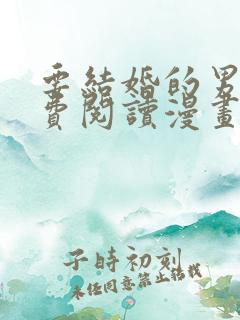 要結婚的男
費閱讀漫畫
子時初刻
未经同意禁止转载